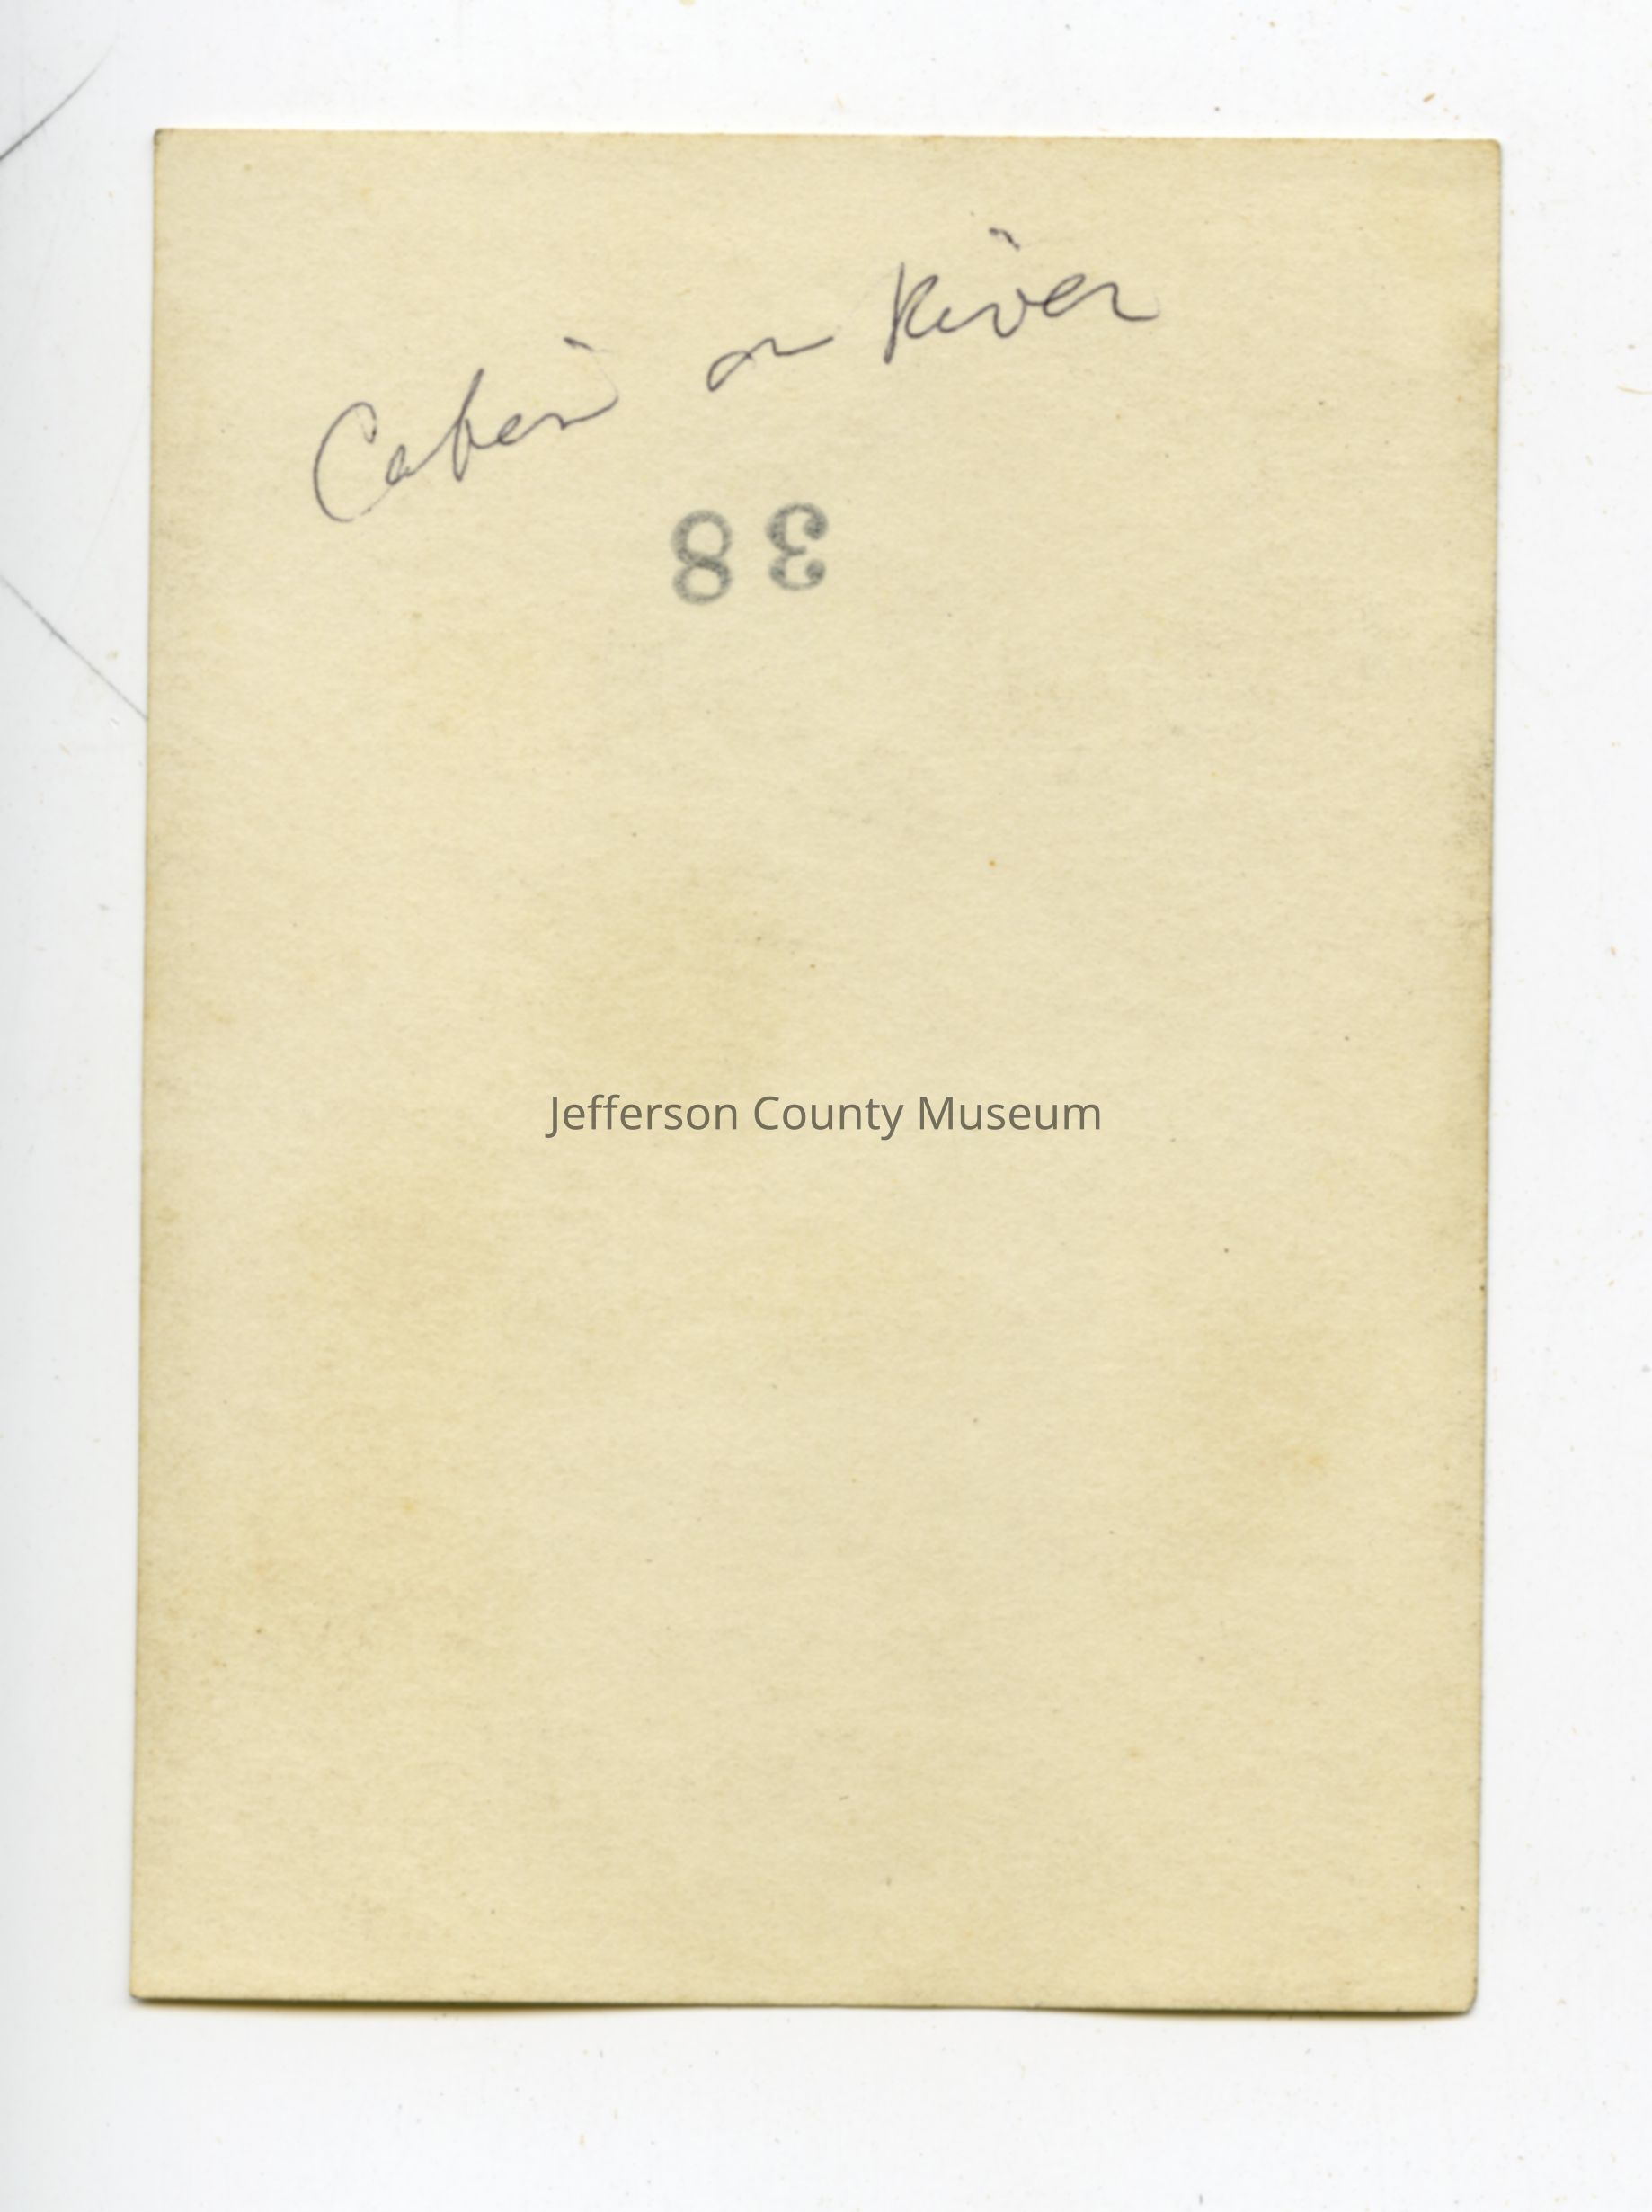 Cabin on River
38
Jefferson County Museum